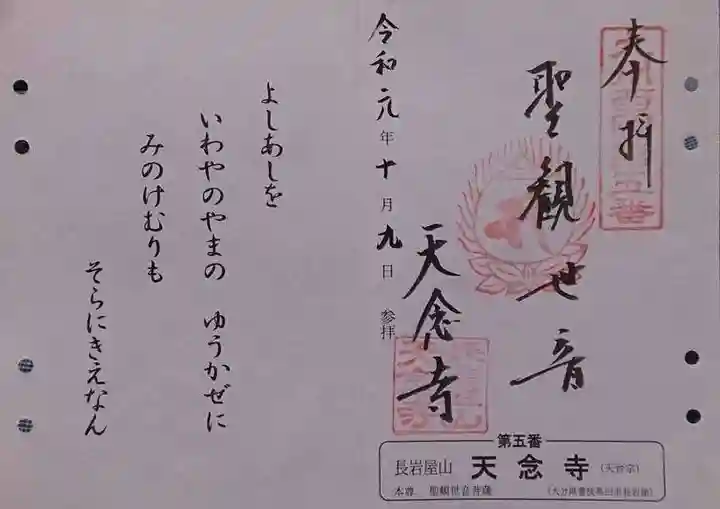 奉拝
聖観世音
天念寺
令和元年十月九日 参拝
第五番
長岩屋山 天念寺 (天台宗)
本尊 聖観世音菩薩
(大分県豊後高田市長岩屋)
よしあしを
いわやのやまの ゆうかぜに
みのけむりも
そらにきえなん